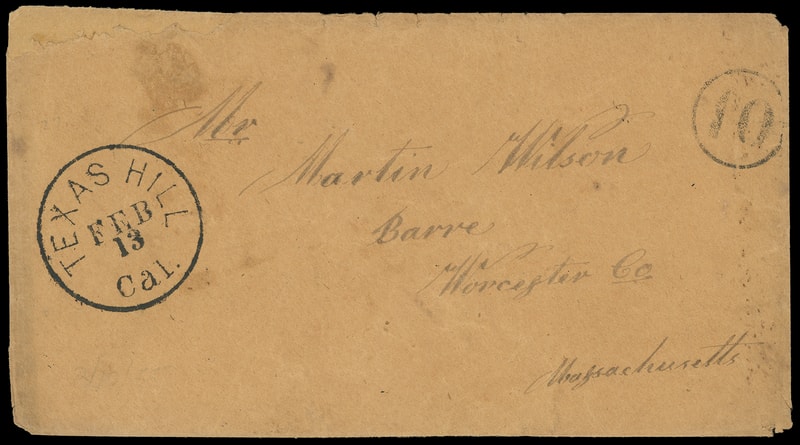 TEXAS HILL
FEB
13
Cal.
10
Mr
Martin Wilson
Barre
Worcester Co
Massachusetts